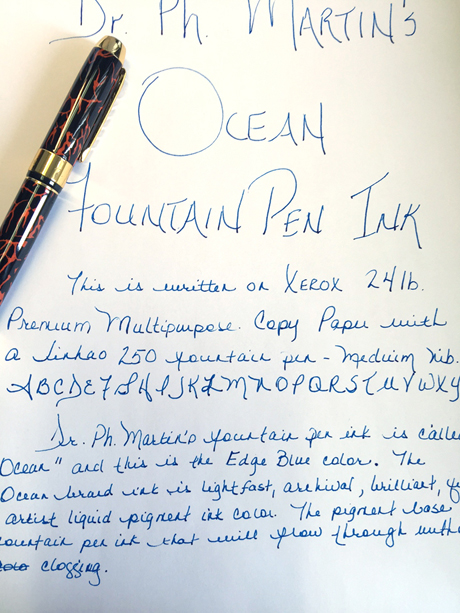 Dr. Ph. Martin's
Ocean
Fountain Pen Ink
This is written on Xerox 24lb.
Premium Multipurpose Copy Paper with
a Jinhao 250 fountain pen - medium nib.
ABCDEFGHIJKLMNOPQRSTUVWXY
Dr. Ph. Martin's fountain pen ink is called
"Ocean" and this is the Edge Blue color. The
Ocean brand ink is lightfast, archival, brilliant,
artist liquid pigment ink color. The pigment base
fountain pen ink that will flow through without
clogging.